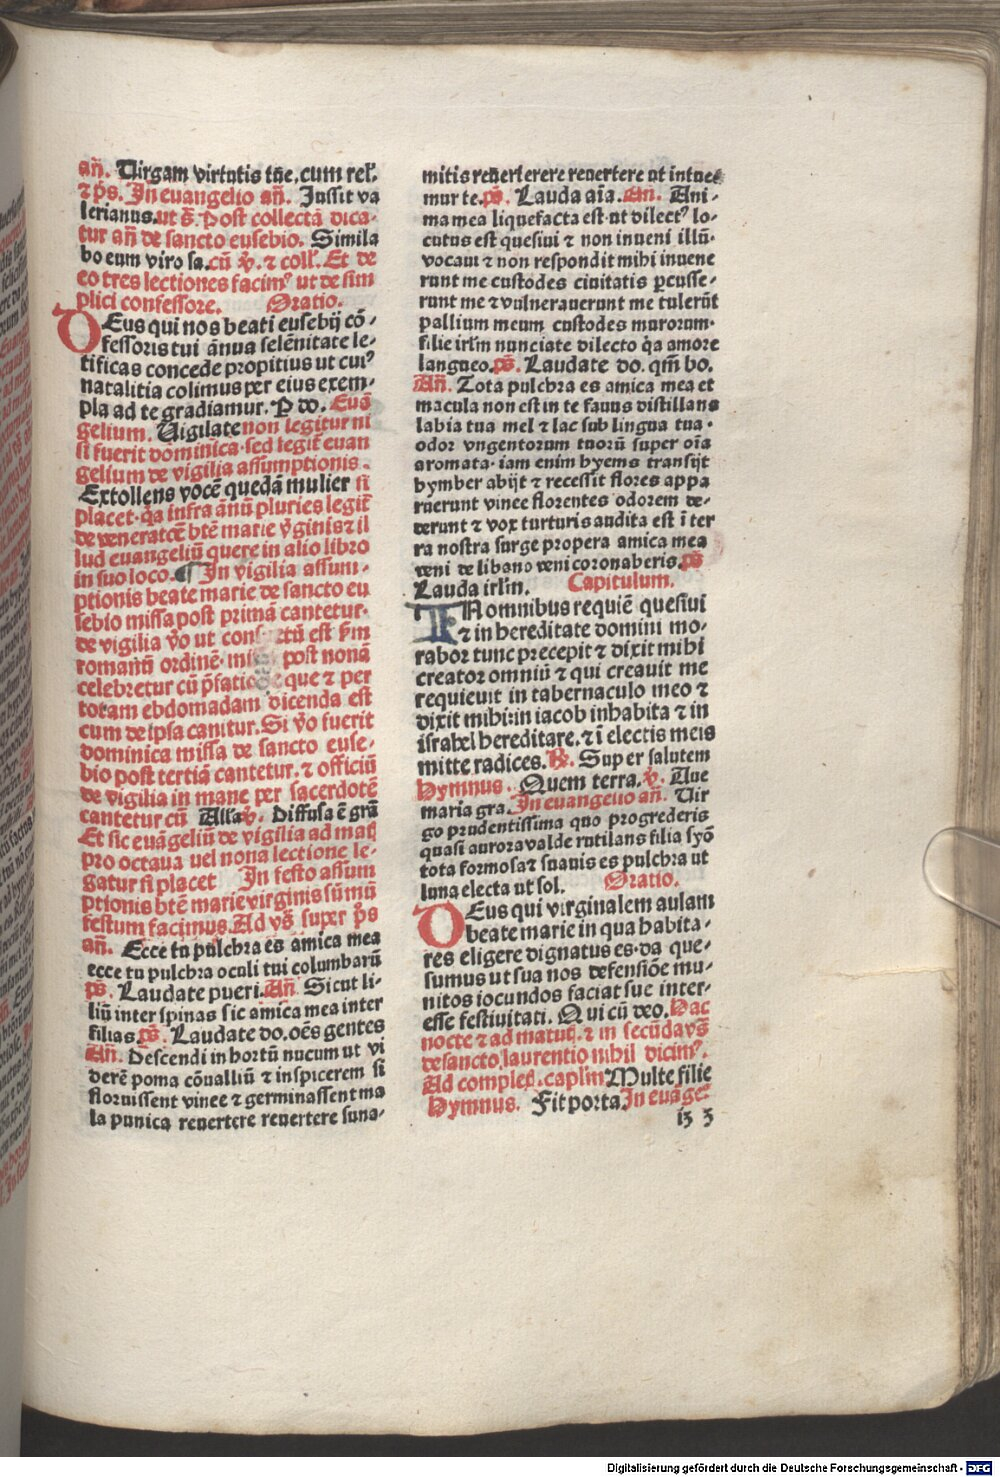 añ. Virgam virtutis tue, cum rel̃.
⁊ p̃s. Iñ euangelio añ. Iussit va
lerianus. ut s̃. Post collectã dica-
tur añ de sancto eusebio. Simila
bo eum viro sa. cũ v̾. ⁊ coll̃. Et de
eo tres lectiones facimꝰ ut de sim
plici confessore. Oratio.
DEus qui nos beati eusebij cõ-
fessoris tui ãnua solẽnitate le-
tificas concede propitius ut cuiꝰ
natalitia colimus per eius exem-
pla ad te gradiamur. P do. Euã
gelium. Uigilate non legitur ni
si fuerit dominica. sed legit̃ euan
gelium de vigilia assumptionis.
Extollens vocẽ quedã mulier si
placet. q̃a infra ãnũ pluries legit̃
de venerat̃e btẽ marie v̾ginis ⁊ il
lud euangeliũ quere in alio libro
in suo loco. ¶ In vigilia assum-
ptionis beate marie de sancto eu
sebio missa post primã cantetur.
de vigilia v̾o ut est
romanũ ordinẽ. post nonã
celebretur cũ p̃fatio que ⁊ per
totam ebdomadam dicenda est
cum de ipsa canitur. Si v̾o fuerit
dominica missa de sancto euse-
bio post tertiã cantetur. ⁊ officiũ
de vigilia in mane per sacerdotẽ
cantetur cũ Alla v̾. Diffusa ẽ grã
Et sic euãgeliũ de vigilia ad mat̃
pro octaua uel nona lectione le-
gatur si placet In festo assum
ptionis btẽ marie virginis sũmũ
festum facimus. Ad vs̃ super p̃s
añ. Ecce tu pulchra es amica mea
ecce tu pulchra oculi tui columbarũ
ps̃. Laudate pueri. Añ. Sicut li-
liũ inter spinas sic amica mea inter
filias. ps̃. Laudate do. oẽs gentes
Añ. Descendi in hortũ nucum ut vi
derẽ poma cõualliũ ⁊ inspicerem si
floruissent vinee ⁊ germinassent ma
la punica reuertere reuertere suna-
mitis reuerterere reuertere ut intue
mur te. ps̃. Lauda aĩa. Añ. Ani-
ma mea liquefacta est ut dilectꝰ lo-
cutus est quesiui ⁊ non inueni illũ.
vocaui ⁊ non respondit mihi inuene
runt me custodes ciuitatis ꝑcusse-
runt me ⁊ vulnerauerunt me tulerũt
pallium meum custodes murorum.
filie irlm̃ nunciate dilecto q̃a amore
langueo. ps̃. Laudate do. qm̃ bo.
Añ. Tota pulchra es amica mea et
macula non est in te fauus distillans
labia tua mel ⁊ lac sub lingua tua.
odor vngentorum tuorũ super oĩa
aromata. iam enim hyems transijt
hymber abijt ⁊ recessit flores appa
ruerunt vinee florentes odorem de-
derunt ⁊ vox turturis audita est ĩ ter
ra nostra surge propera amica mea
veni de libano veni coronaberis. ps̃
Lauda irlm̃. Capitulum.
IN omnibus requiẽ quesiui
⁊ in hereditate domini mo-
rabor tunc precepit ⁊ dixit mihi
creator omniũ ⁊ qui creauit me
requieuit in tabernaculo meo ⁊
dixit mihi: in iacob inhabita ⁊ in
israhel hereditare. ⁊ ĩ electis meis
mitte radices. R̾. Super salutem
Hymnus. Quem terra. v̾. Aue
maria gra. In euangelio añ. Vir
go prudentissima quo progrederis
quasi aurora valde rutilans filia syõ
tota formosa ⁊ suauis es pulchra ut
luna electa ut sol. Oratio.
DEus qui virginalem aulam
beate marie in qua habita-
res eligere dignatus es. da que-
sumus ut sua nos defensiõe mu-
nitos iocundos faciat sue inter-
esse festiuitati. Qui cũ deo. Hac
nocte ⁊ ad matut̃. ⁊ in secũdis vs̃
de sancto laurentio nihil dicimꝰ.
Ad completˀ. caplm̃ Multe filie
Hymnus. Fit porta. In euãge.
13 3
Digitalisierung gefördert durch die Deutsche Forschungsgemeinschaft - DFG